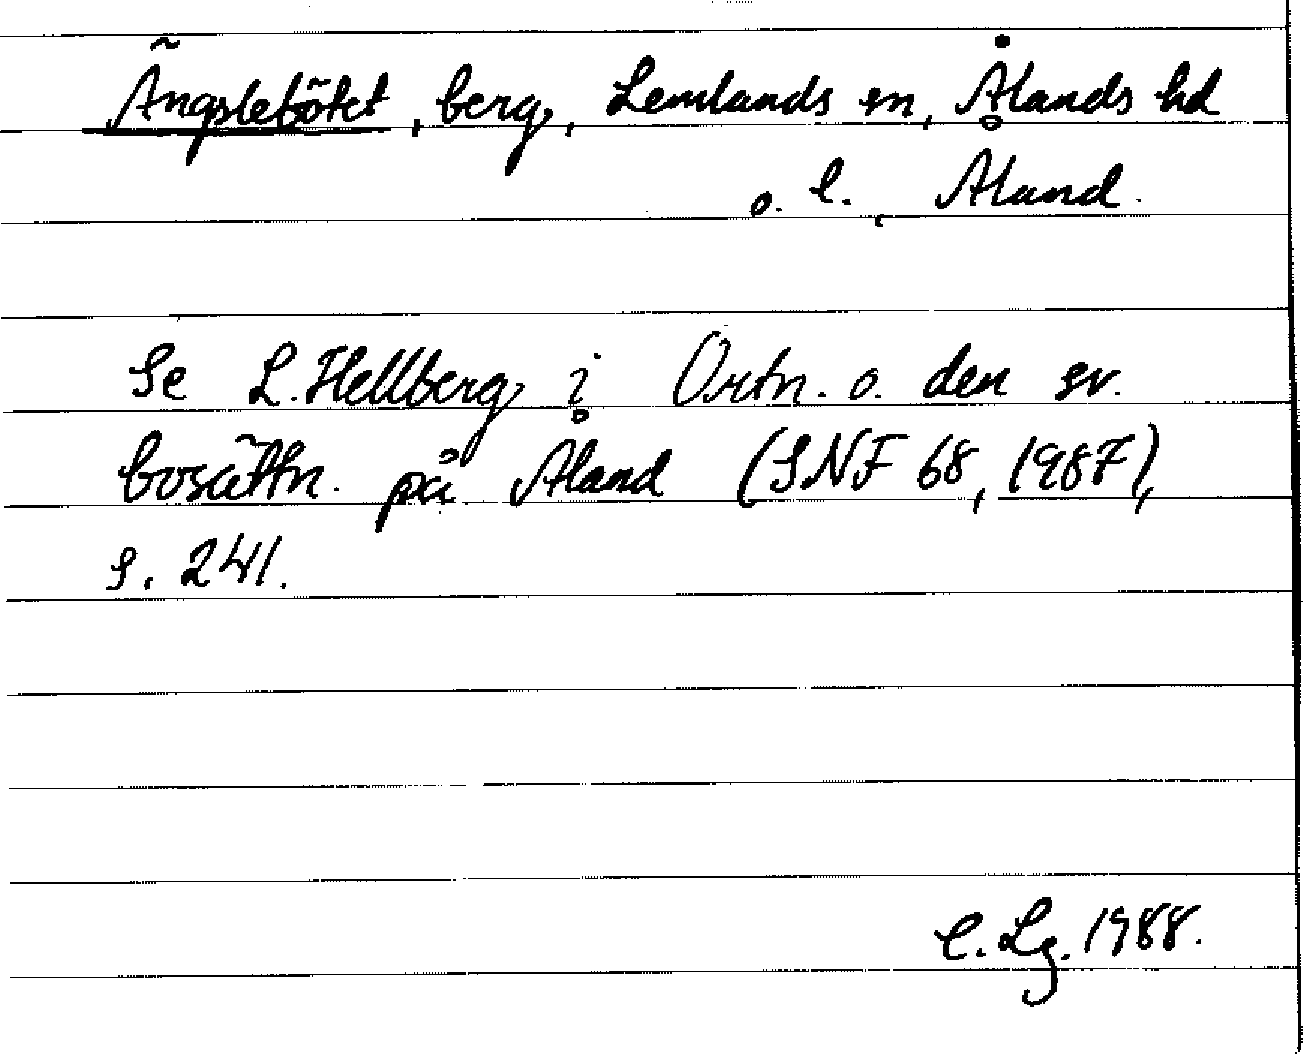 Ängslebötet, berg, Lemlands sn, Ålands hd
o. l., Åland.
Se L. Hellberg i Ortn. o. den sv.
bosättn. på Åland (SNF 68, 1987),
s. 241.
C. Lg. 1988.